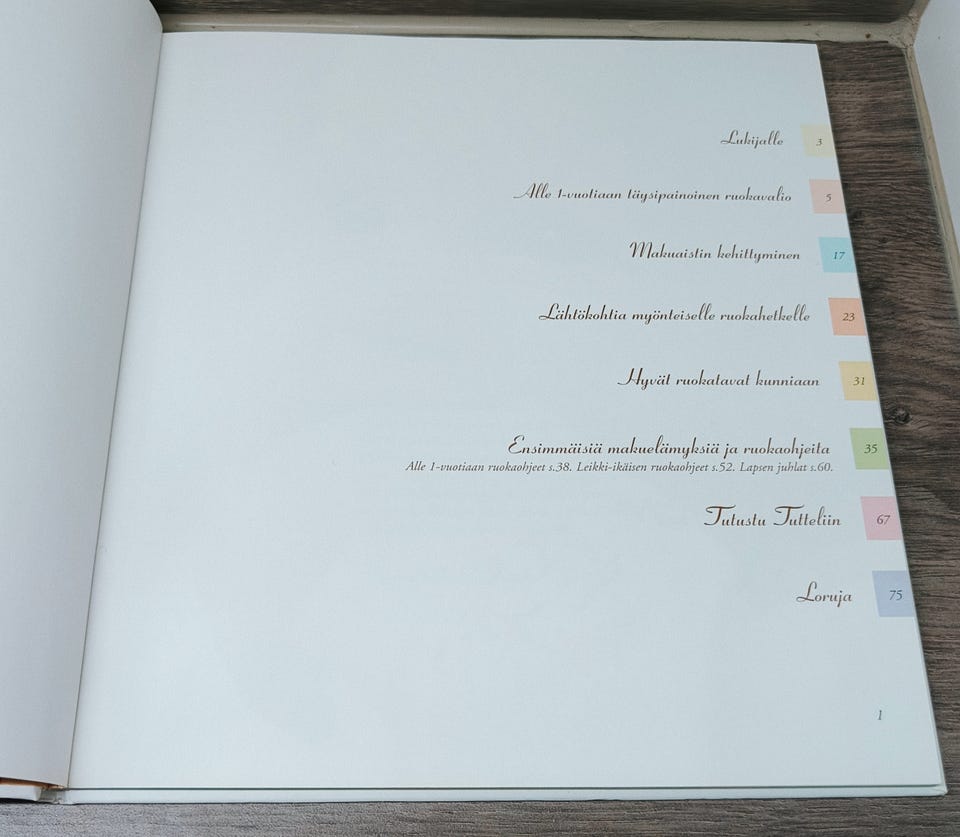 Lukijalle 3
Alle 1-vuotiaan täysipainoinen ruokavalio 5
Makuaistin kehittyminen 17
Lähtökohtia myönteiselle ruokahetkelle 23
Hyvät ruokatavat kunniaan 31
Ensimmäisiä makuelämyksiä ja ruokaohjeita 35
Alle 1-vuotiaan ruokaohjeet s.38. Leikki-ikäisen ruokaohjeet s.52. Lapsen juhlat s.60.
Tutustu Tutteliin 67
Loruja 75
1